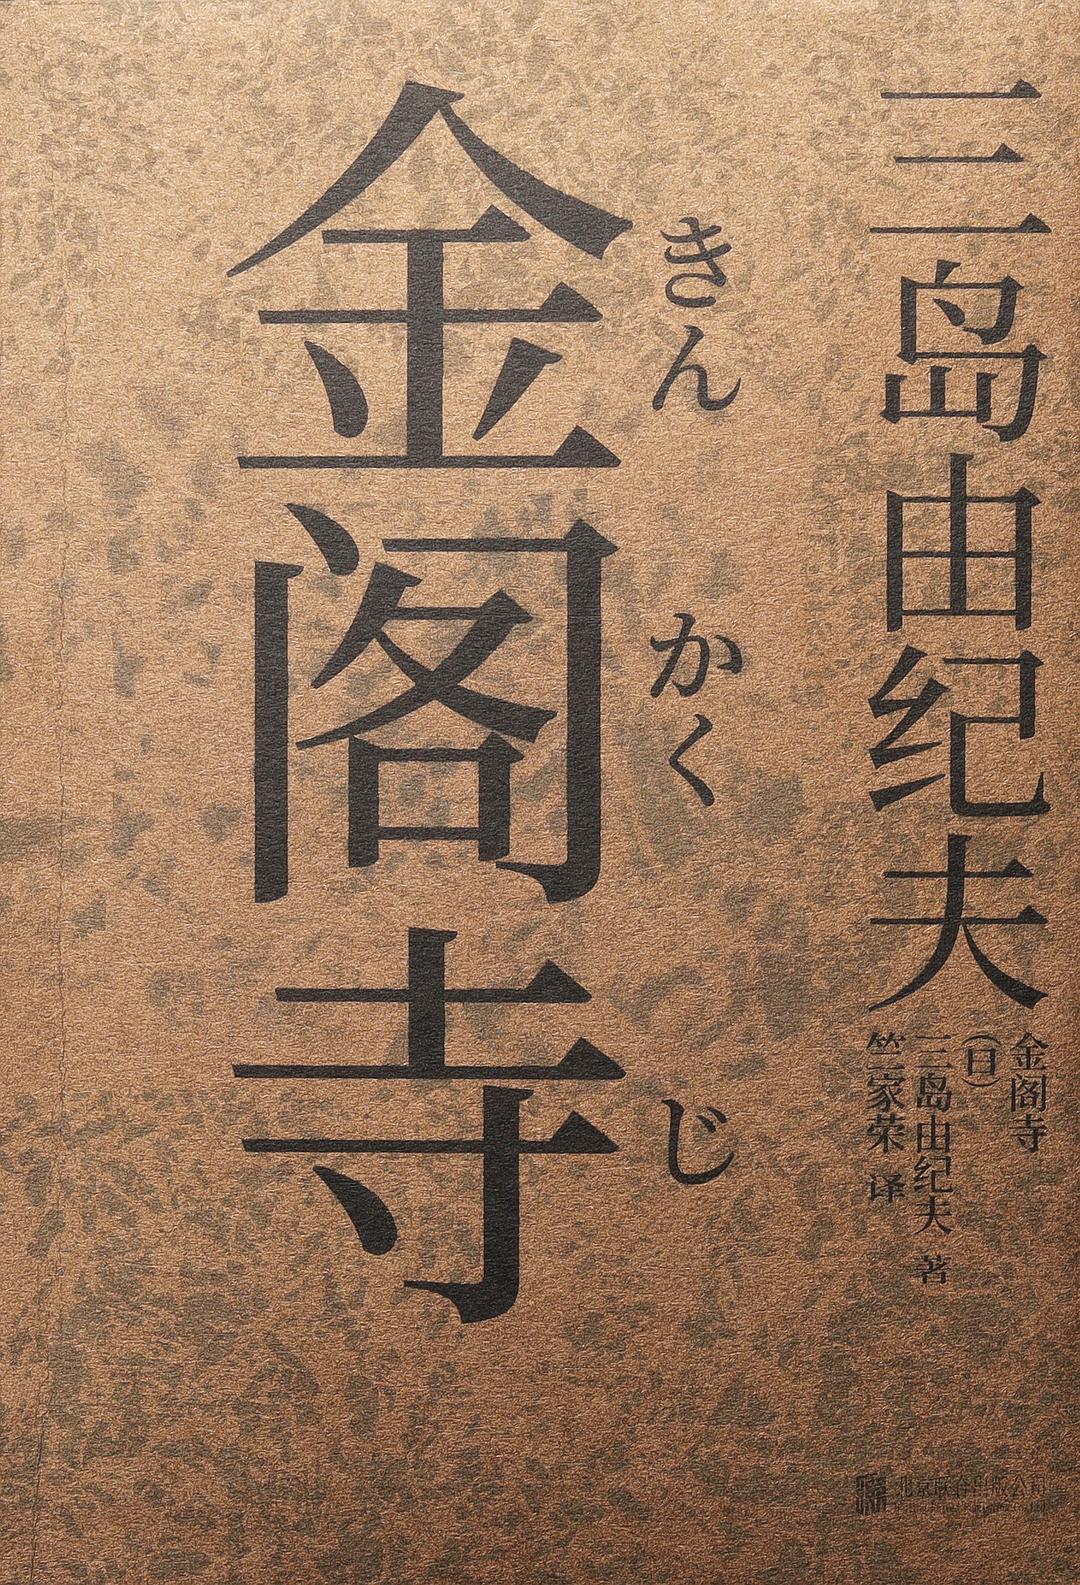 三岛由纪夫
金阁寺
(日)
三岛由纪夫 著
竺家荣 译
きんかくじ
金阁寺
北京联合出版公司